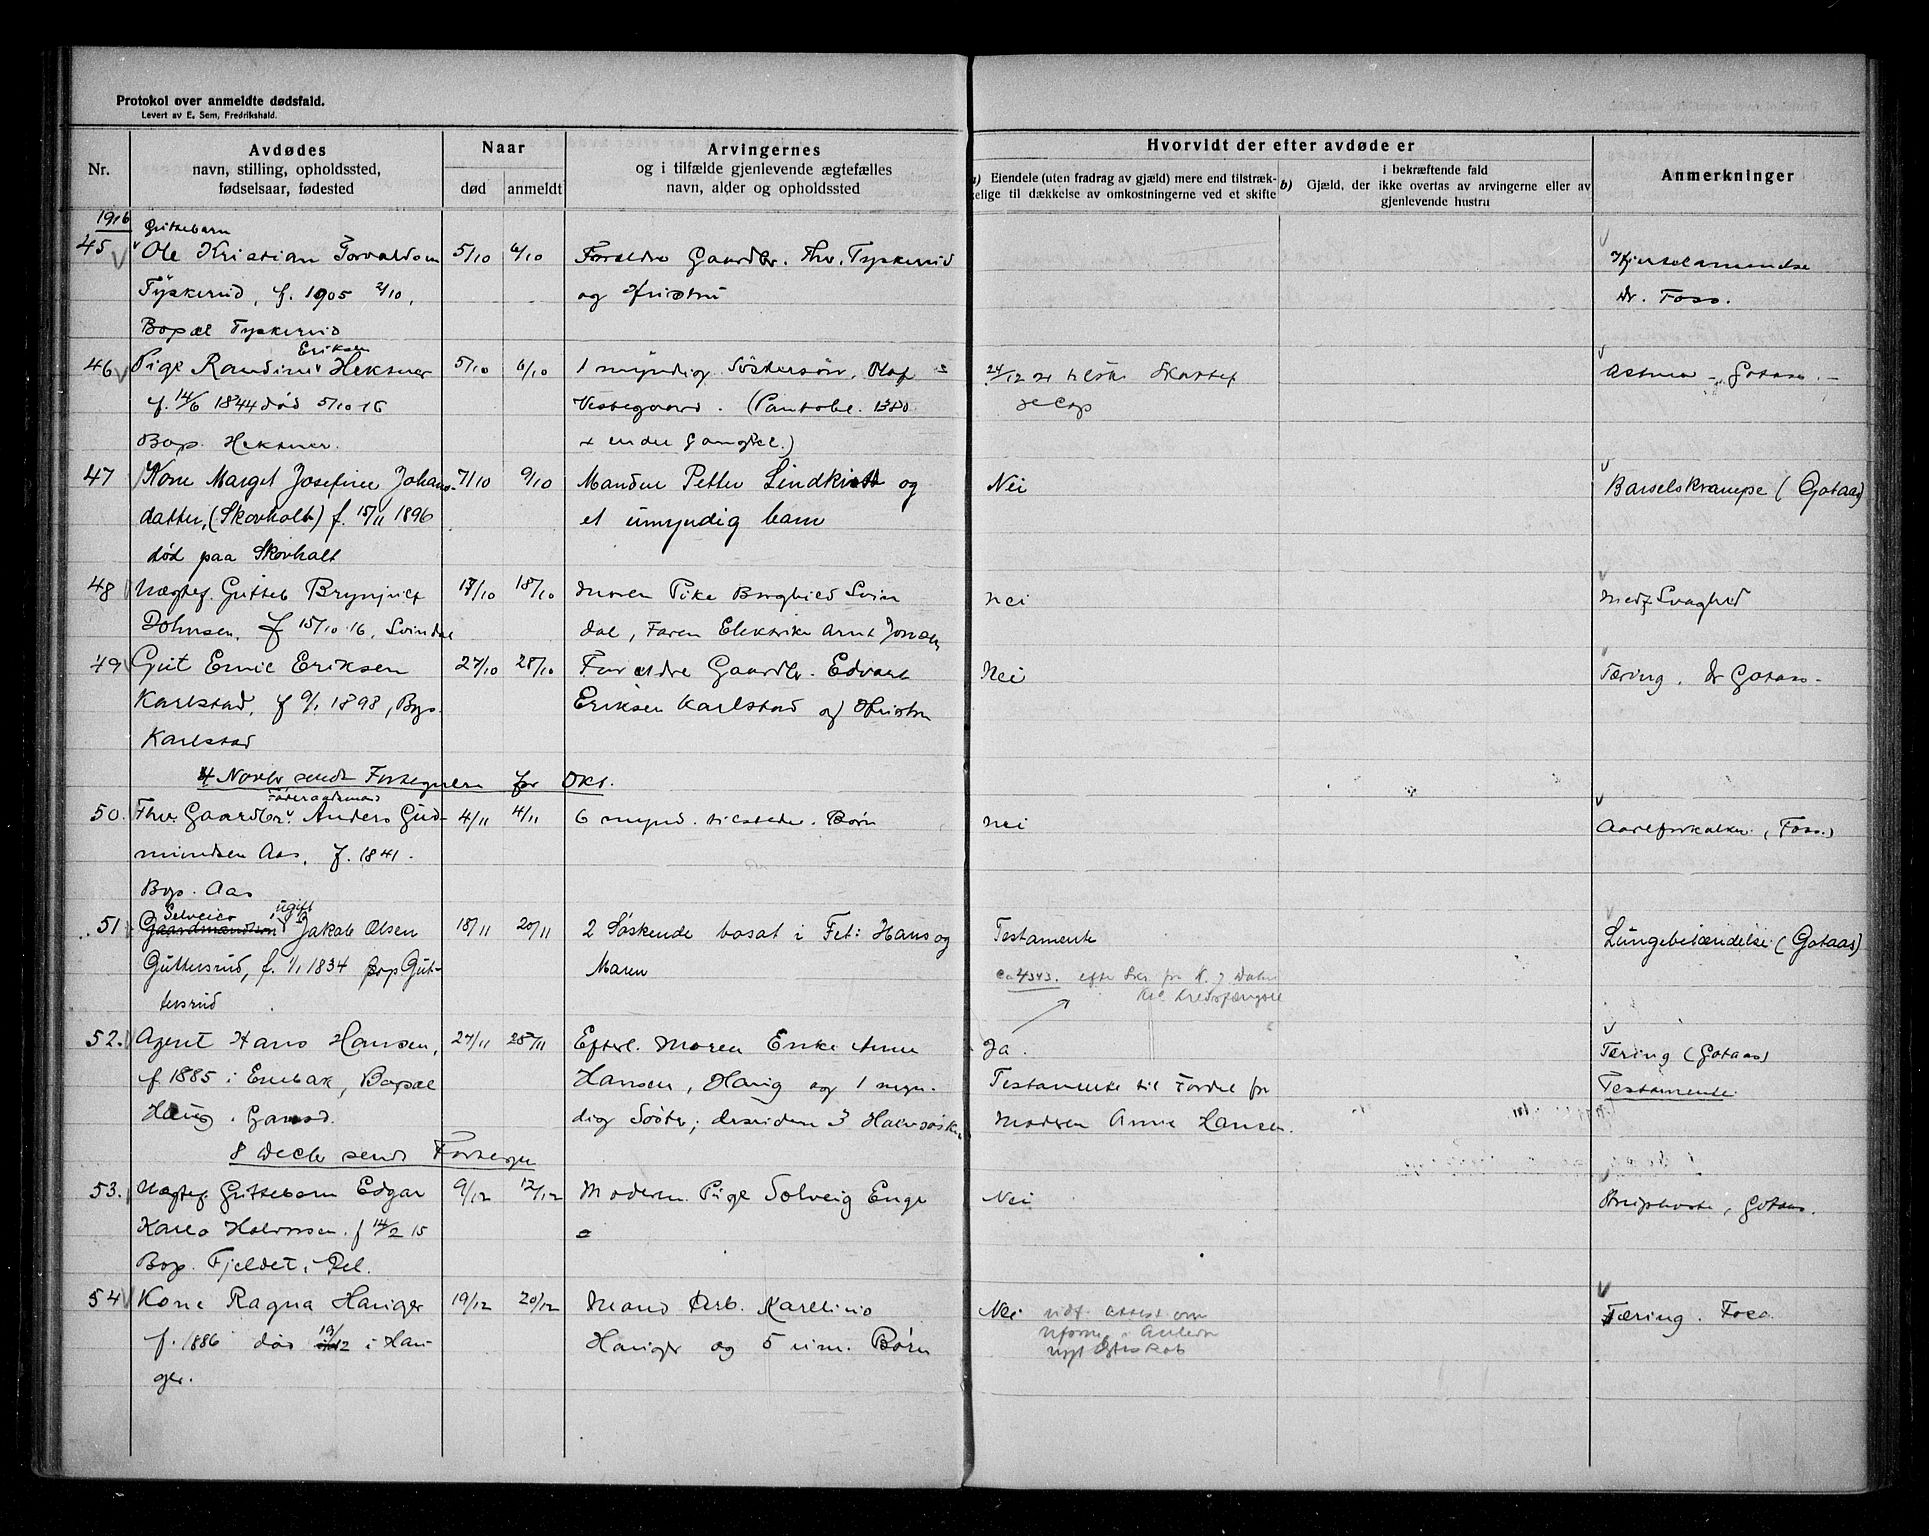 Protokol over anmeldte dødsfald.
Levert av E. Sem, Fredrikshald.
Nr.
Avdødes
navn, stilling, opholdssted,
fødselsaar, fødested
Naar
død
anmeldt
Arvingernes
og i tilfælde gjenlevende ægtefælles
navn, alder og opholdssted
Hvorvidt der efter avdøde er
a) Eiendele (uten fradrag av gjæld) mere end tilstræk-
kelige til dækkelse av omkostningerne ved et skifte
b)
i bekræftende fald
Gjæld, der ikke overtas av arvingerne eller av
gjenlevende hustru
Anmerkninger
1916
Guttebarn
45 Ole Kristian Torvaldsen 5/10 6/10 Forældre Gaardbr. Thv. Tyskerud
Tyskerud, f. 1905 2/10, og Hustru
Dr. Foss.
Bopæl Tyskerud
Eriksen
46 Pige Randine Heksner 5/10 6/10 1 myndig Søstersøn, Olaf Astma - Gotaas. -
f. 14/6 1844 død 5/10 16 Vestegaard. (Pantobl. 1380
Bop. Heksner.
47 Kone Marget Josefine Johans- 7/10 9/10 Manden Petter Lindkvist og Nei Barselskrampe (Gotaas)
datter, (Skovholt) f. 15/11 1896 et umyndig barn
død paa Skovholt
48 Uægtef. Gutteb Brynjulf 17/10 18/10 Moren Pike Borghild Svin Nei Medf. Svaghed
Johnsen, f 15/10 16, Svindal dal, Faren Elektriker Arnt Jonsen
49 Gut Emil Eriksen 27/10 28/10 Forældre Gaardbr. Edvart Nei Tæring, Dr Gotaas-
Karlstad, f 9/1 1898, Bop. Eriksen Karlstad og Hustru
Karlstad
4 Novbr sendt Fortegnelse for Okt.
Føderaadsmand
50. Fhv. Gaardbr. Anders Gud- 4/11 4/11 6 mynd. tilstede. Børn Nei Aareforkalkn. (Foss.)
mundsen Aas, f. 1841.
Bop. Aas
Selveier, ugift
51 Gaardmandssøn Jakob Olsen 18/11 20/11 2 Søskende bosat i Fet: Hans og Testamente Lungebetændelse (Gotaas)
Guttersrud, f. 1/1 1834 Bop Gut- Maren
tersrud
ca 4343. efter Skr. fra
52. Agent Hans Hansen, 27/11 28/11 Efterl. Moren Enke Anne Ja. Tæring (Gotaas)
f 1885 i Enebak, Bopæl Hansen, Haug og 1 myn- Testamente til Fordel for Testamente.
Haug. dig Søster; desuden 3 Halvsøsken Modren Anne Hansen.
8 Decbr sendt Fortegn
53. Uægtef. Guttebarn Edgar 9/12 12/12 Moderen Pige Solveig Enge Nei Kighoste, Gotaas.
Karlo Halvorsen. f 14/2 15
Bop. Fjeldet, Del.
54 Kone Ragna Hauger 19/12 20/12 Mand Arb. Karelius Nei udf. attest om Tæring. Foss
f. 1886 død 19/12 i Hau- Hauger og 5 um. Børn
nyt Egteskab
ger.